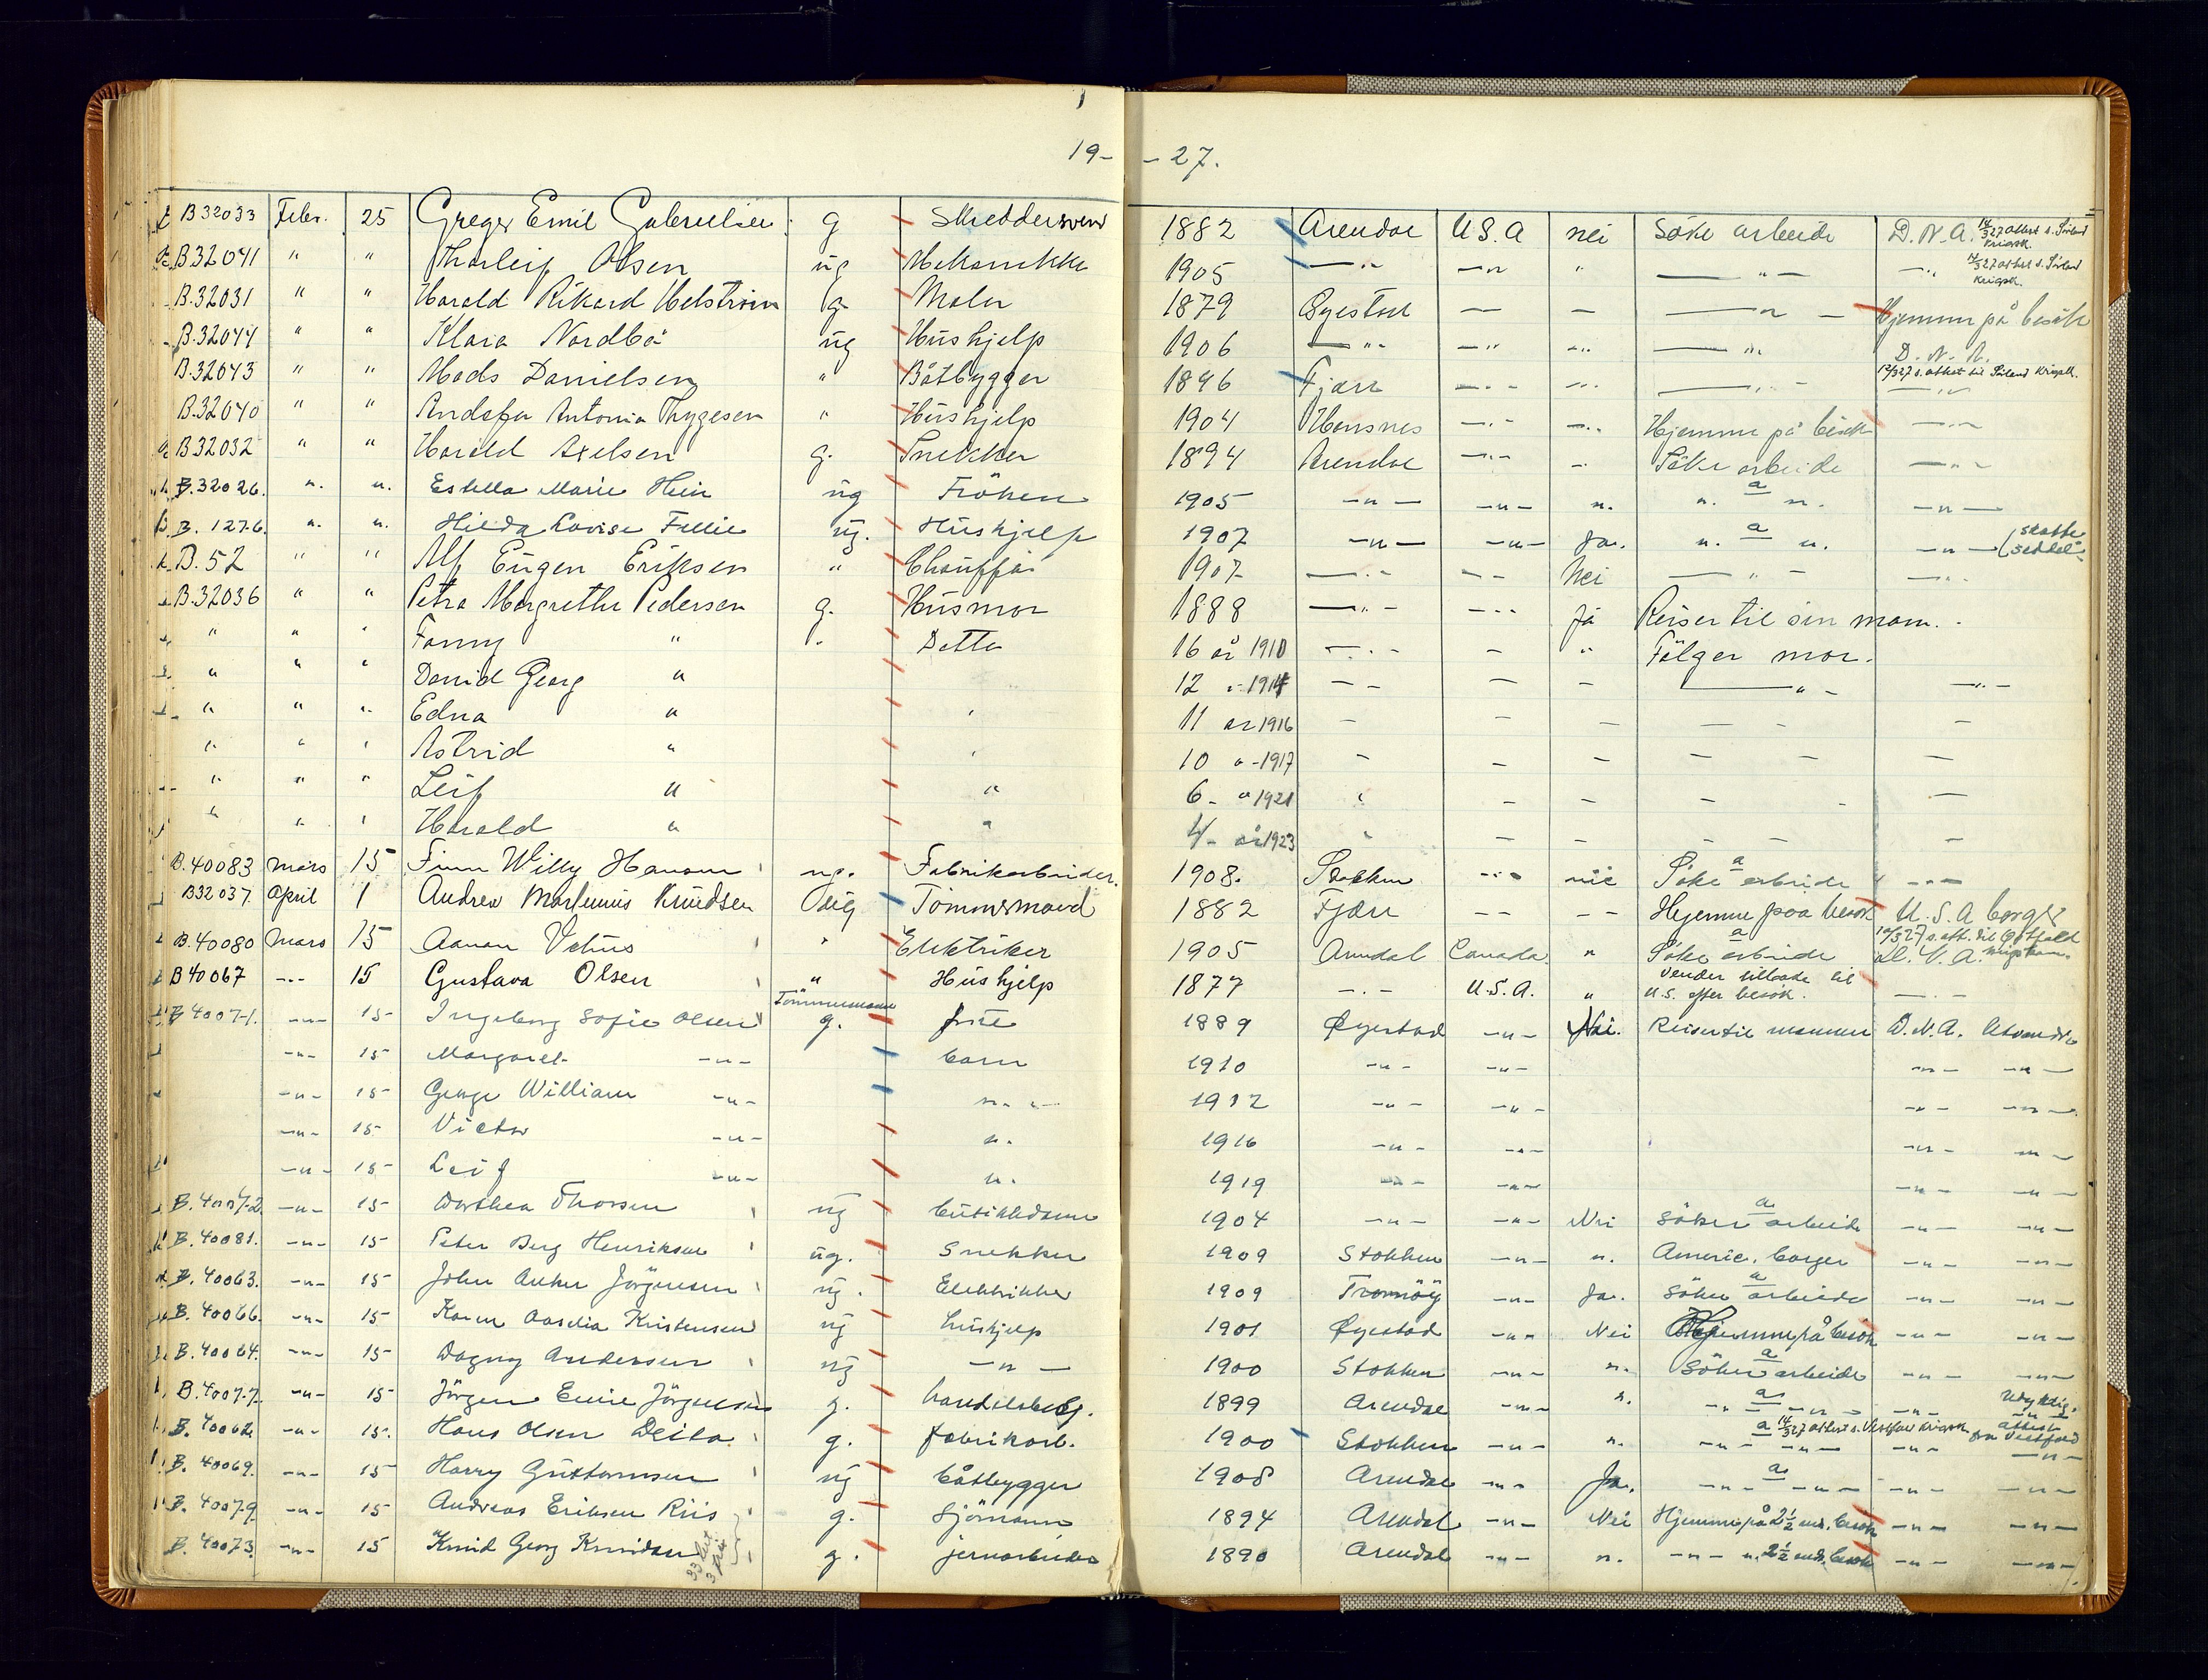 19- -27.
B32033 Febr. 25 Greger Emil Gabrielsen g Skreddersven 1882 Arendal U.S.A nei Söke arbeide D.N.A. 14/3 27 attest s. Sörland Krigsk.
B.32041 " " Thorleif Olsen ug Mekanikke 1905 —"— —"— " —"— —"— 14/3 27 attest s. Sörland Krigsk.
B.32031 " " Harald Rikard Helström g. Maler 1879 Öyestad — — —"— Hjemme på besök
B.32044 " " Klara Nordbö ug Hushjelp 1906 —"— —"— —"— —"— D.N.A.
B.32043 " " Mads Danielsen " Båtbygger 1896 Fjære —"— —"— —"— 12/3 27 s. attest til Sörland Krigsk. —"—
B.32040 " " Antonia Thygesen " Hushjelp 1904 —"— —"— Hjemme på besök —"—
B32032 " " Harald Axelsen g. Snekker 1894 Arendal —"— — Söke arbeide —"—
B.32026. " " Estella Marie Hein ug Fröken 1905 —"— —"— " " a " —"—
B. 1276. " " Hilda Lovise ug. Hushjelp 1907 —"— —"— Ja. " a " —"— (skatte seddel
B.52 " " Alf Eugen Eriksen " Chaufför 1907 —"— —"— Nei —"— —"—
B.32036 " " Petra Margrethe Pedersen g. Husmor 1888 —"— —"— Ja Reiser til sin mann.
" " " Fanny " Dette 16 år 1910 —"— — " Fölger mor.
" " " David Georg " 12 " 1914 — — — —"— —"—
" " " Edna " 11 år 1916 — — — — —
" " " Astrid " 10 " -1917 — — — — —
" " " Leif " " 6- " 1921 " — — — —
" " " Harald " " 4- år 1923 " — — — —
B.40083 Mars 15 Finn Willy Hansen ug. Fabrikarbeider. 1908. Stokken —"— nei Söke a arbeide —"—
B32037. April 1 Andrew Martinius Knudsen Tömmermand 1882 Fjære — — — — Hjemme paa besök U.S.A borger
B.40080 Mars 15 Aanon Vetrus " Elektriker 1905 Arendal Canada " Söke a arbeide 10/3 27 s. att. til D.N.A.
B40067 —"— 15 Gustava Olsen " Hushjelp 1877 —"— U.S.A. " Vender tilbake til U.S. efter besök. —"—
B 40071. —"— 15 Ingeborg Sofie Olsen Tömmermann g. frue 1889 Öyestad —"— Nei. Reiser til mannen D.N.A. Utvandre
—"— 15 Margaret —"— barn 1910 —"— —"— —"— —"—
—"— 15 George William —"— —"— 1912 —"— —"— —"— —"—
—"— 15 Victor —"— " 1916 —"— —"— —"— —"—
—"— 15 Leif —"— " 1919 —"— —"— —"— —"—
B.40072. —"— 15 Dorthea Thorsen ug butikkdame 1904 —"— —"— Nei söker a arbeide —"— —"—
B.40081. —"— 15 Peter Berg Henriksen ug. Snekker 1909 Stokken —"— " Americ. borger —"— —"—
B.40063. —"— 15 John Anker Jörgensen ug. Elektrikker 1909 Tromöy —"— Ja. söker a arbeide —"— —"—
B.40066. —"— 15 Karen Aaselia Kristensen ug hushjelp 1901 Öyestad —"— Nei Hjemme på besök —"— —"—
B.40064. —"— 15 Dagny Andersen ug —"— 1900 Stokken —"— " söker a arbeide —"— —"—
B.40077. —"— 15 Jörgen Emil Jörgensen g. handelsbetj. 1899 Arendal —"— " —"— a —"— —"—
B.40062. —"— 15. Hans Olsen g. fabrikarb. 1900 Stokken —"— " a 14/3 27 attest s. Vestfold Krigsk. —"— —"— —"— attest fra Vestfold —"—
B.40069. —"— 15 Harry Guttormsen ug båtbygger 1908 Arendal —"— Ja. —"— a —"— —"— —"—
B.40079. —"— 15 Andreas Eriksen Riis g. Sjömann 1894 Arendal —"— Nei Hjemme på 2½ md. besök —"— —"—
B.40073. —"— 15 Knud Georg Knudsen g. jernarbeider 1890 Arendal —"— " —"— " 2½ md. besök —"— —"—